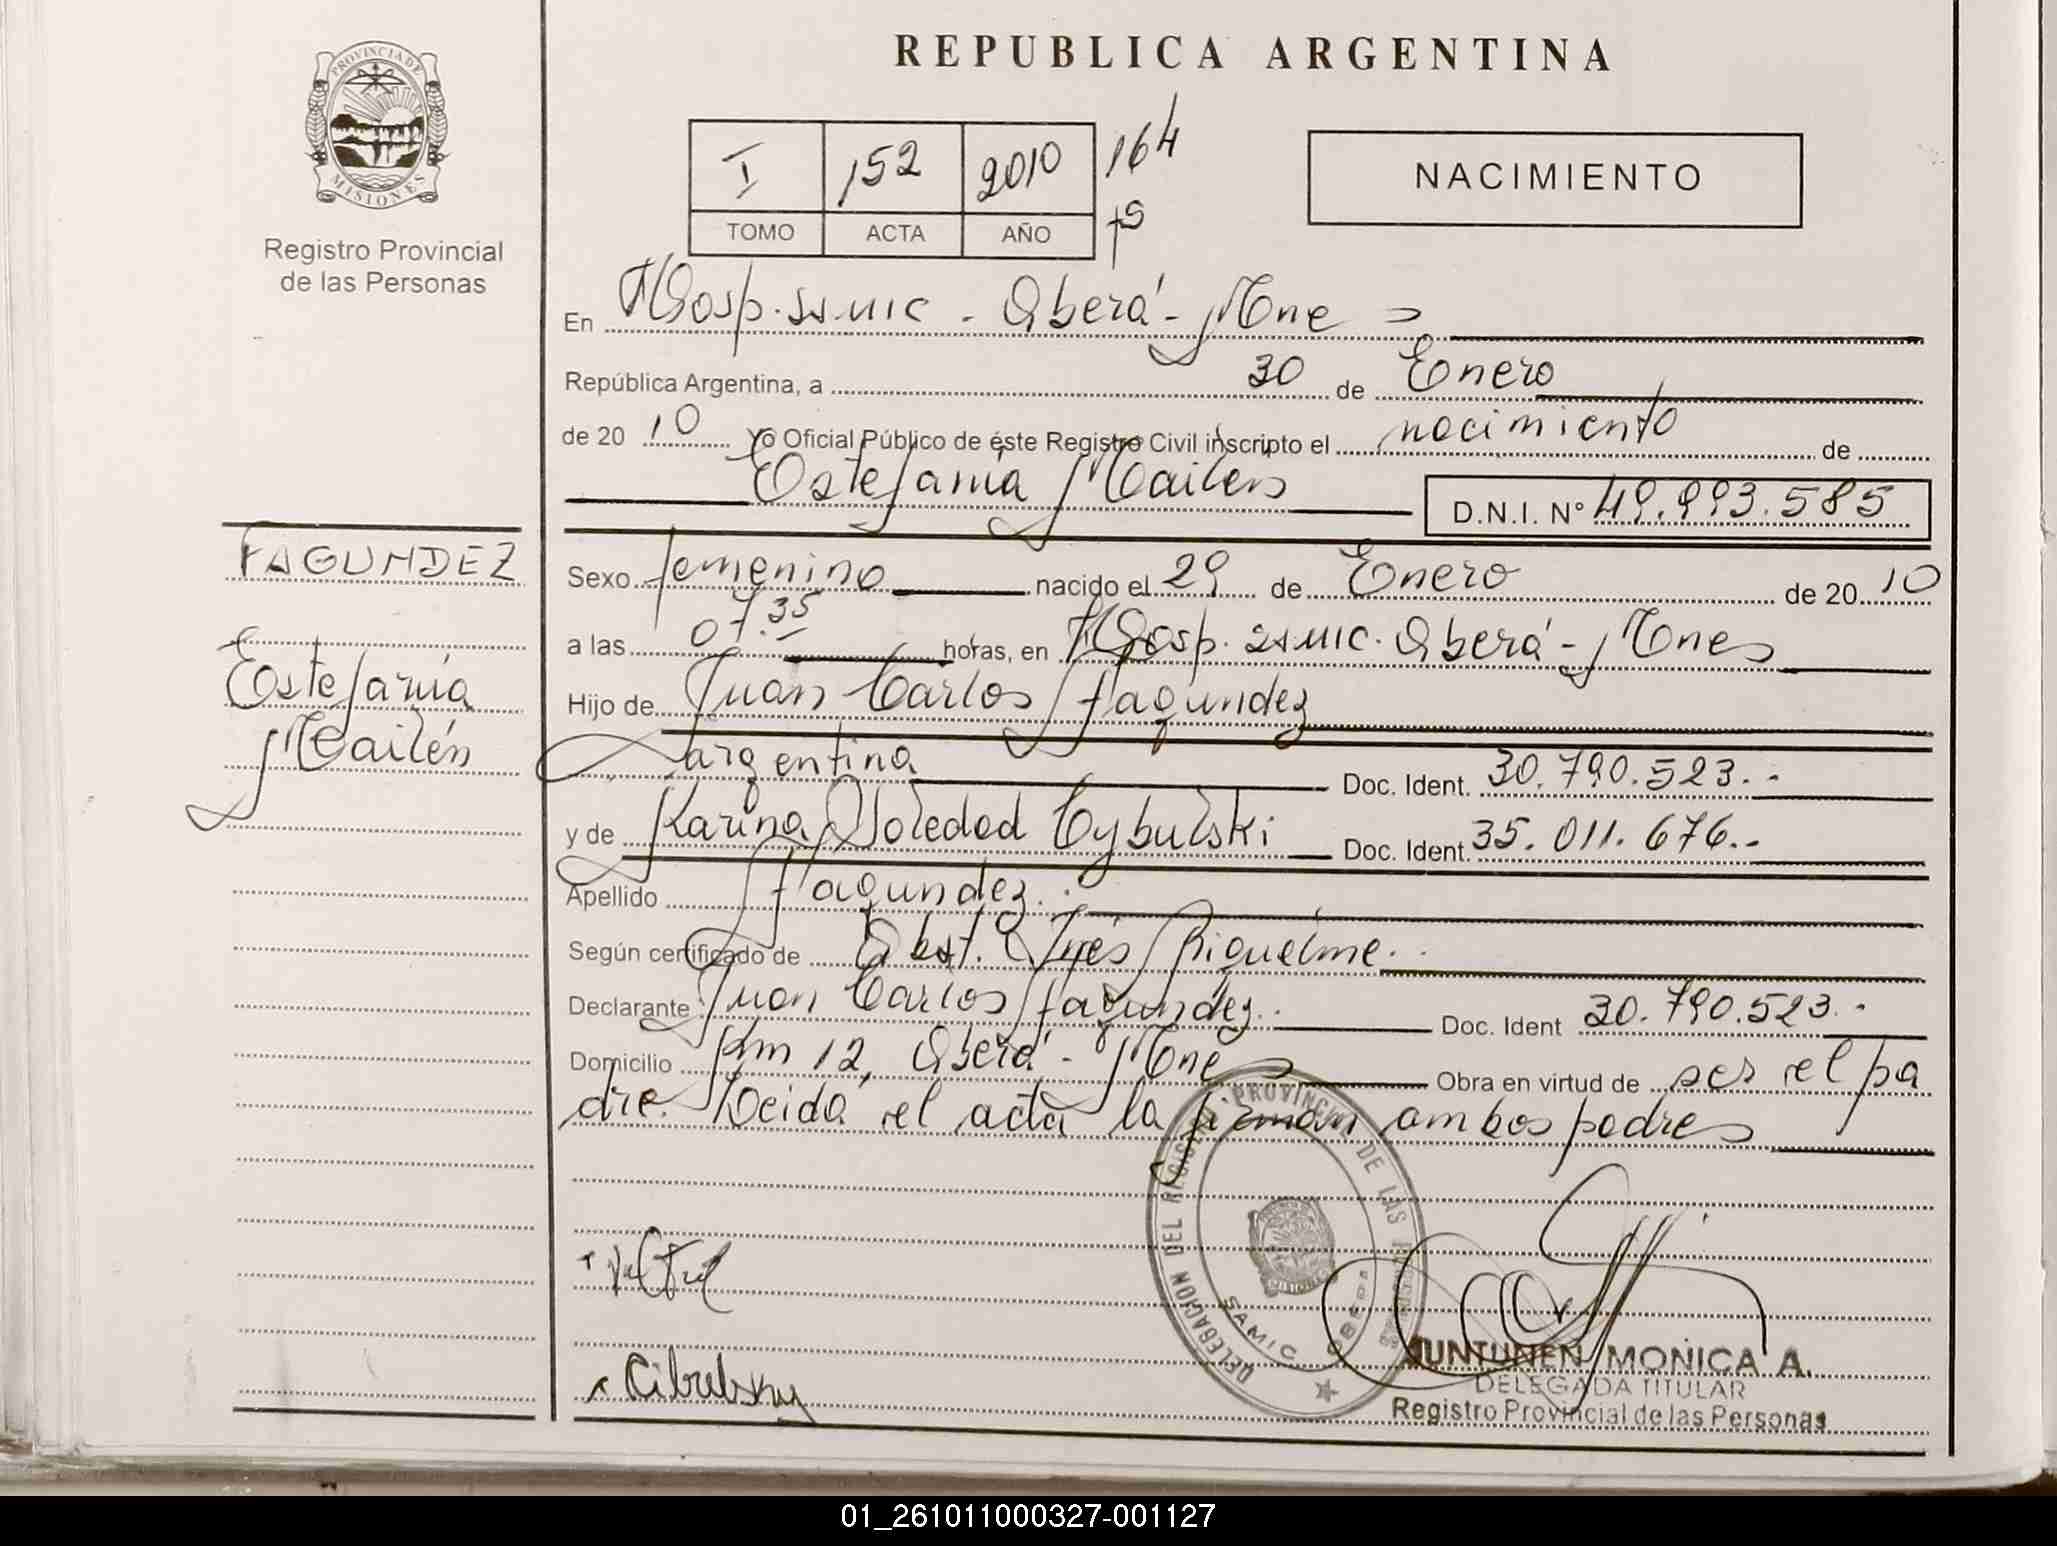 REPUBLICA ARGENTINA
PROVINCIA DE
MISIONES
Registro Provincial
de las Personas
I 152 2010 164
TOMO ACTA AÑO fs
NACIMIENTO
En Hosp. ssmic - Oberá - Mnes
República Argentina, a 30 de Enero
de 2010 Yo Oficial Público de éste Registro Civil inscripto el nacimiento de
Estefanía Mailén D.N.I. N° 49.993.585
FAGUNDEZ
Estefanía
Mailén
Sexo femenino nacido el 29 de Enero de 2010
a las 07.35 horas, en Hosp. ssmic. Oberá - Mnes
Hijo de Juan Carlos Fagundez
argentina Doc. Ident. 30.790.523.-
y de Karina Soledad Cybulski Doc. Ident. 35.011.676.-
Apellido Fagundez.
Según certificado de Obst. Inés Riquelme.
Declarante Juan Carlos Fagundez. Doc. Ident 30.790.523.-
Domicilio Km 12, Oberá - Mnes Obra en virtud de ser el pa
dre. Leida el acta la firman ambos padres
DELEGACION DEL REGISTRO PROVINCIAL DE LAS PERSONAS
SAMIC OBERA
Cibulsky
JUNTUNEN MONICA A.
DELEGADA TITULAR
Registro Provincial de las Personas
01_261011000327-001127